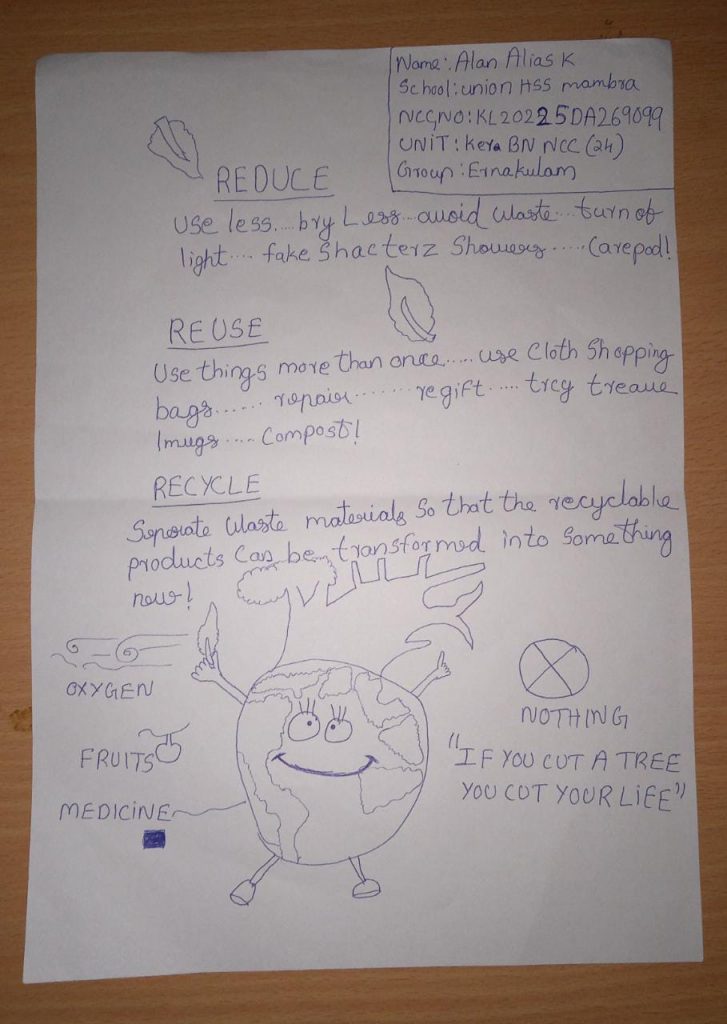 Name: Alan Alias K
School: union HSS mambra
NCC,NO: KL20225DA269099
UNIT: Kera BN NCC (24)
Group: Ernakulam
REDUCE
Use less.... bry Less... avoid waste... turn of
light.... fake Shacterz Showers ..... Carepod!
REUSE
Use things more than once..... use Cloth Shopping
bags...... repair ....... regift ..... trcy treaue
Imugs .... Compost!
RECYCLE
Seperate waste materials So that the recyclable
products Can be transformed into Something
new!
OXYGEN
NOTHING
FRUITS
"IF YOU CUT A TREE
MEDICINE
YOU CUT YOUR LIFE"